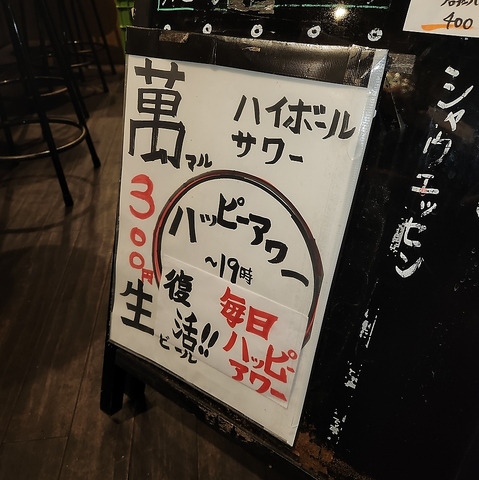 萬
マル
ハイボール
サワー
300円
ハッピーアワー
~19時
復活!!
毎日
ハッピー
アワー
生
ビール
シャウエッセン
400